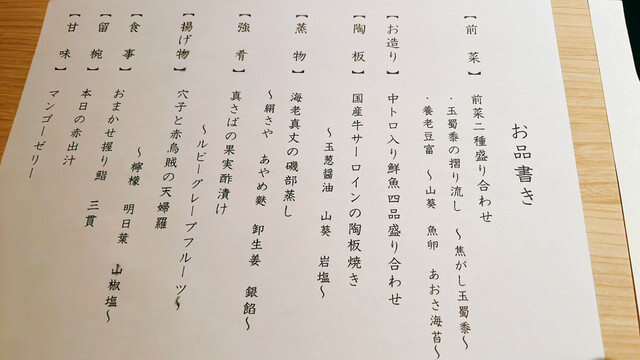 お品書き
【前菜】 前菜二種盛り合わせ
・玉蜀黍の摺り流し ～焦がし玉蜀黍～
・養老豆富 ～山葵 魚卵 あおさ海苔～
【お造り】 中トロ入り鮮魚四品盛り合わせ
【陶板】 国産牛サーロインの陶板焼き
～玉葱醤油 山葵 岩塩～
【蒸物】 海老真丈の磯部蒸し
～絹さや あやめ麩 卸生姜 銀餡～
【強肴】 真さばの果実酢漬け
～ルビーグレープフルーツ～
【揚げ物】 穴子と赤烏賊の天婦羅
～檸檬 明日葉 山椒塩～
【食事】 おまかせ握り鮨 三貫
【留椀】 本日の赤出汁
【甘味】 マンゴーゼリー